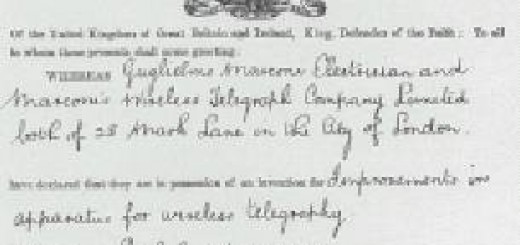 Of the United Kingdom of Great Britain and Ireland, King, Defender of the Faith: To all
to whom these presents shall come greeting:
WHEREAS Guglielmo Marconi Electrician and
Marconi's Wireless Telegraph Company Limited
both of 28 Mark Lane in the City of London.
have declared that they are in possession of an invention for Improvements in
apparatus for wireless telegraphy.